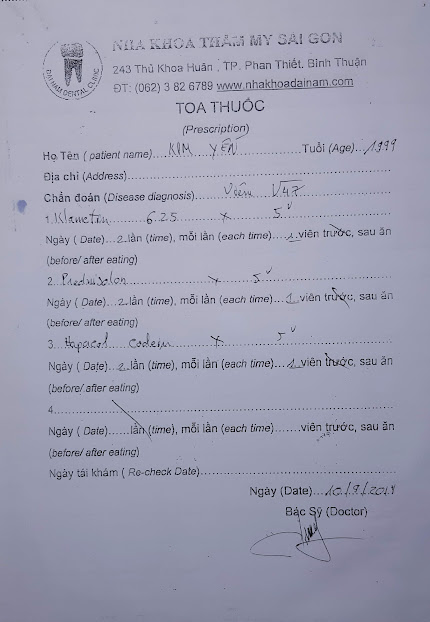 NHA KHOA THẨM MỸ SÀI GÒN
243 Thủ Khoa Huân , TP. Phan Thiết, Bình Thuận
DAI NAM DENTAL CLINIC
ĐT: (062) 3 82 6789 www.nhakhoadainam.com
TOA THUỐC
(Prescription)
Họ Tên ( patient name)....KIM YẾN Tuổi (Age)...1999
Địa chỉ (Address)
Chẩn đoán (Disease diagnosis) Viêm V47
1. Klametin 625 x 5v
Ngày ( Date)..2.lần (time), mỗi lần (each time)...1.viên trước, sau ăn
(before/ after eating)
2. Prednisolon x 5v
Ngày ( Date)..2.lần (time), mỗi lần (each time)...1.viên trước, sau ăn
(before/ after eating)
3. Hapacol codein x 5v
Ngày ( Date)..2.lần (time), mỗi lần (each time)...1.viên trước, sau ăn
(before/ after eating)
4
Ngày ( Date)......lần (time), mỗi lần (each time).......viên trước, sau ăn
(before/ after eating)
Ngày tái khám ( Re-check Date)
Ngày (Date)...10/9/2019
Bác Sỹ (Doctor)